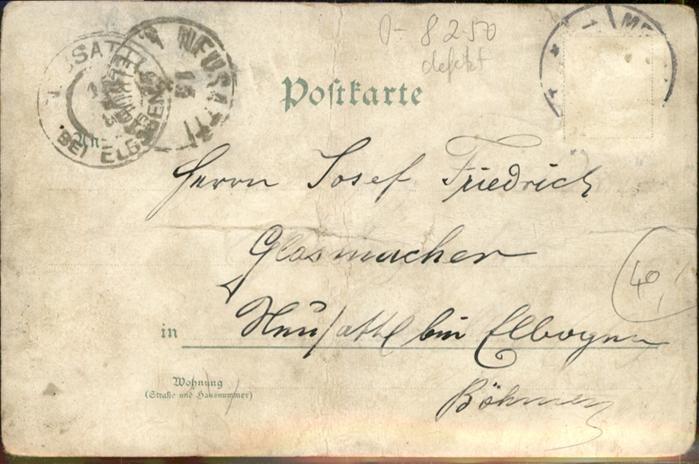 0- 8250
defekt
Postkarte
NEUSATTL
BEI ELBOGEN
An
Herrn Josef Friedrich
Glasmacher
in Neusattl bei Elbogen
Wohnung
(Straße und Hausnummer)
Böhmen
40,